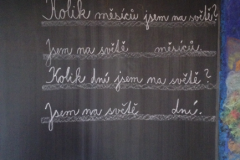 Kolik měsíců jsem na světě?
Jsem na světě měsíců.
Kolik dní jsem na světě?
Jsem na světě dní.